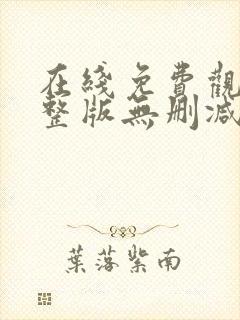 在綫免費觀
整版無刪减
葉落紫南